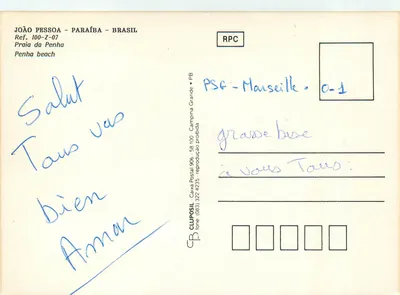 JOÃO PESSOA - PARAÍBA - BRASIL
Ref. 100-Z-07
Praia da Penha
Penha beach
Salut
Tous vas
bien
RPC
PSG - Marseille. 0-1
grosse bise
à vous Tous.
CLUPOSIL - Caixa Postal 906 - 58 100 - Campina Grande • PB
fone (083) 322 4235 - reprodução proibida